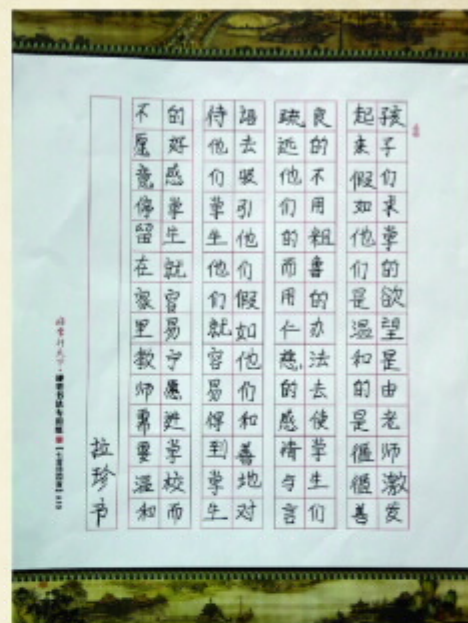 孩子们求学的欲望是由老师激发
起来假如他们是温和的是循循善
良的不用粗鲁的办法去使学生们
疏远他们的而用仁慈的感情与言
语去吸引他们假如他们和善地对
待他们学生他们就容易得到学生
的好感学生就容易宁愿进学校而
不愿意停留在家里教师需要温和
拉珍书
硬笔书法专用纸